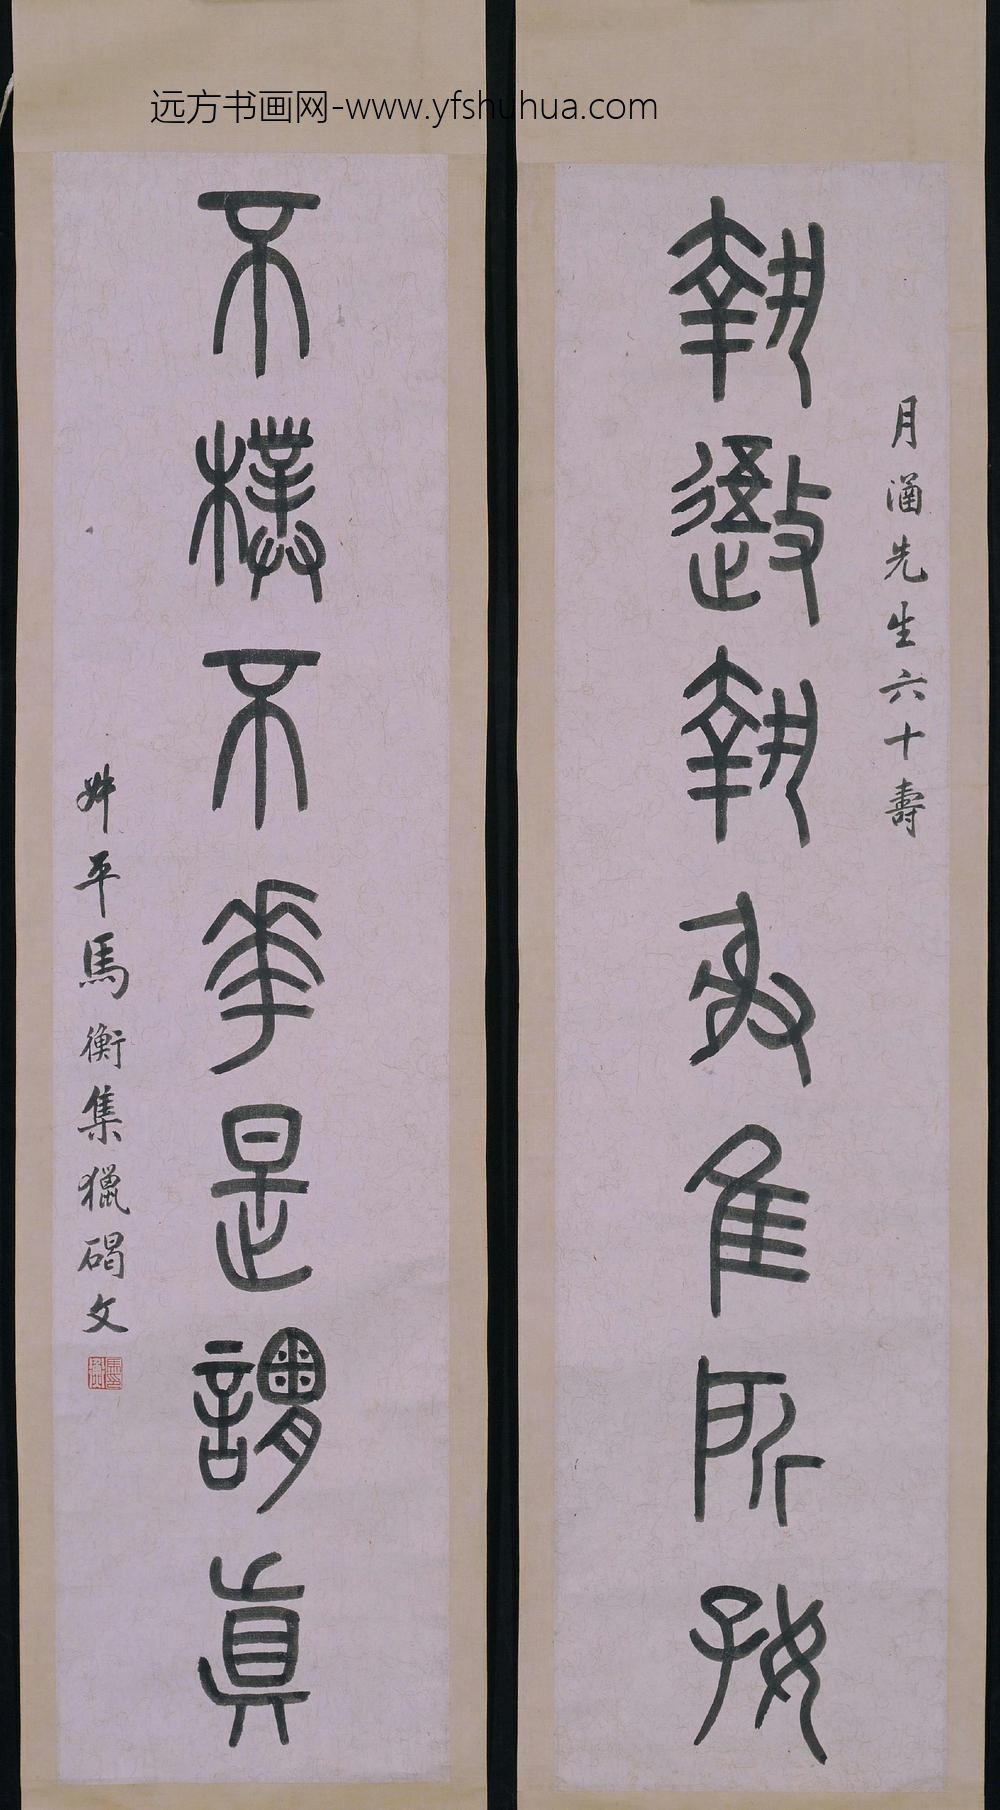 远方书画网-www.yfshuhua.com
月涵先生六十壽
執執隹所好
不樸不華是謂真
叔平馬衡集獵碣文